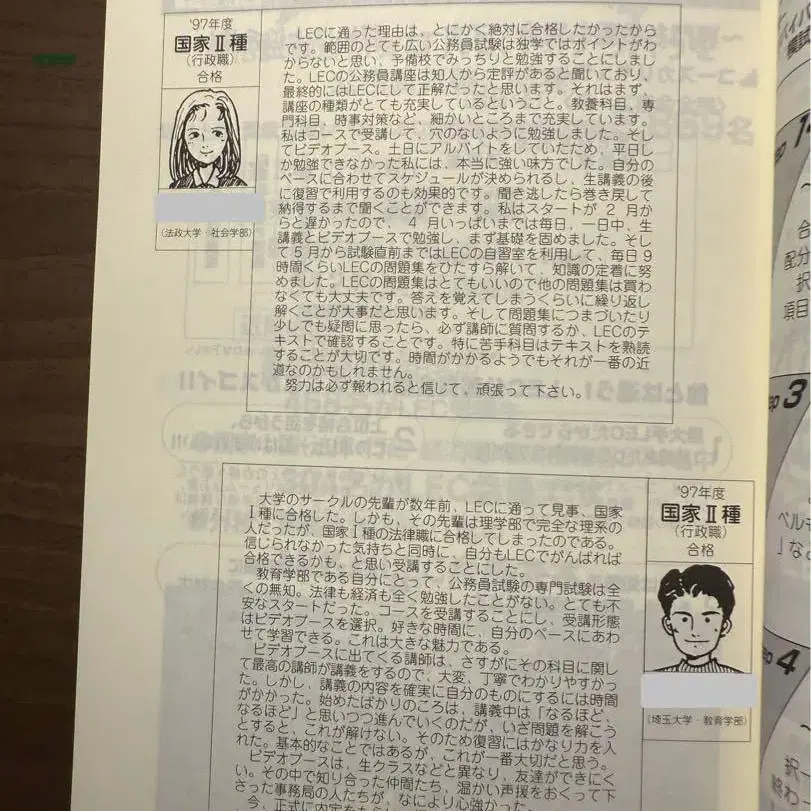 '97年度
国家Ⅱ種
(行政職)
合格
(法政大学・社会学部)
LECに通った理由は、とにかく絶対に合格したかったから
です。範囲のとても広い公務員試験は独学ではポイントがわ
からないと思い、予備校でみっちりと勉強することにしまし
た。LECの公務員講座は知人から定評があると聞いており、
最終的にはLECにして正解だったと思います。それはまず、
講座の種類がとても充実しているということ。教養科目、専
門科目、時事対策など、細かいところまで充実しています。
私はコースで受講して、穴のないように勉強しました。そし
てビデオブース。土日にアルバイトをしていたため、平日し
か勉強できなかった私には、本当に強い味方でした。自分の
ペースに合わせてスケジュールが決められるし、生講義の後
に復習で利用するのも効果的です。聞き逃したら巻き戻して
納得するまで聞くことができます。私はスタートが2月か
らと遅かったので、4月いっぱいまでは毎日、一日中、生
講義とビデオブースで勉強し、まず基礎を固めました。そし
て5月から試験直前まではLECの自習室を利用して、毎日9
時間くらいLECの問題集をひたすら解いて、知識の定着に努
めました。LECの問題集はとてもいいので他の問題集は買わ
なくても大丈夫です。答えを覚えてしまうくらいに繰り返し
解くことが大事だと思います。そして問題集につまづいたり
少しでも疑問に思ったら、必ず講師に質問するか、LECのテ
キストで確認することです。特に苦手科目はテキストを熟読
することが大切です。時間がかかるようでもそれが一番の近
道なのかもしれません。
努力は必ず報われると信じて、頑張って下さい。
'97年度
国家Ⅱ種
(行政職)
合格
(埼玉大学・教育学部)
大学のサークルの先輩が数年前、LECに通って見事、国家
Ⅰ種に合格した。しかも、その先輩は理学部で完全な理系の
人だったが、国家Ⅰ種の法律職に合格してしまったのである。
信じられなかった気持ちと同時に、自分もLECでがんばれば
合格できるかも、と思い受講することにした。
教育学部である自分にとって、公務員試験の専門試験は全
くの無知。法律も経済も全く勉強したことがない。とても不
安なスタートだった。コースを受講することにし、受講形態
はビデオブースを選択。好きな時間に、自分のペースにあわ
せて学習できる。これは大きな魅力である。
ビデオブースに出てくる講師は、さすがにその科目に関し
て最高の講師が講義をするので、大変、丁寧でわかりやすかっ
た。しかし、講義の内容を確実に自分のものにするには時間
がかかった。始めたばかりのころは、講義中は「なるほど、
なるほど」と思いつつ進んでいくのだが、いざ問題を解こう
とすると、これが解けない。そのため復習にはかなり力を入
れた。基本的なことではあるが、これが一番大切だと思う。
ビデオブースは、生クラスなどと異なり、友達ができにく
い。その中で知り合った仲間たち、温かい声援をおくって下
さった事務局の人たちが、なにより心強かった。